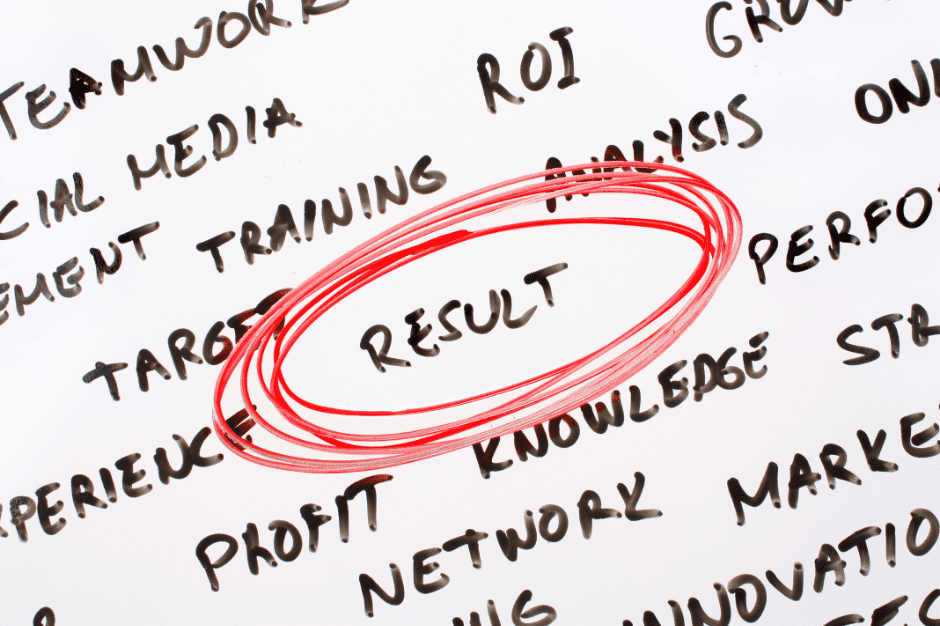 TEAMWORK ROI GROW
CIAL MEDIA ANALYSIS ONL
EMENT TRAINING PERFO
TARGET RESULT STR
XPERIENCE KNOWLEDGE MARKE
PROFIT NETWORK INNOVATIO